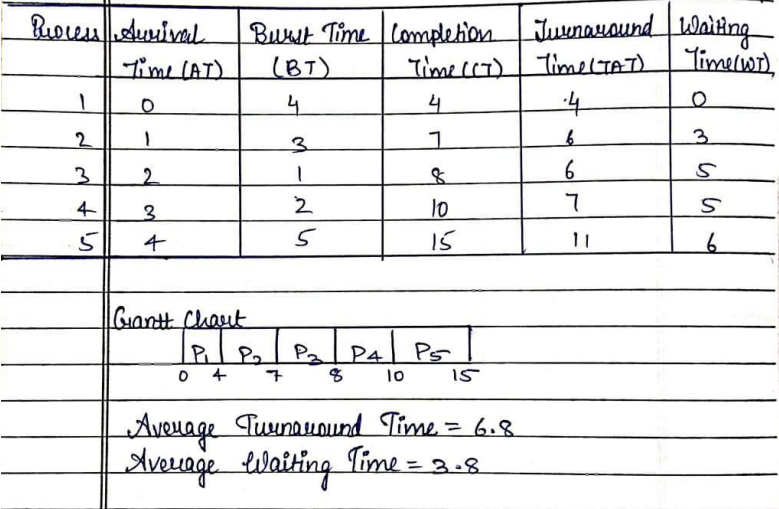 Process Arrival Burst Time Completion Turnaround Waiting
Time (AT) (BT) Time (CT) Time (TAT) Time (WT)
1 0 4 4 4 0
2 1 3 7 6 3
3 2 1 8 6 5
4 3 2 10 7 5
5 4 5 15 11 6
Gantt Chart
P1 P2 P3 P4 P5
0 4 7 8 10 15
Average Turnaround Time = 6.8
Average Waiting Time = 3.8